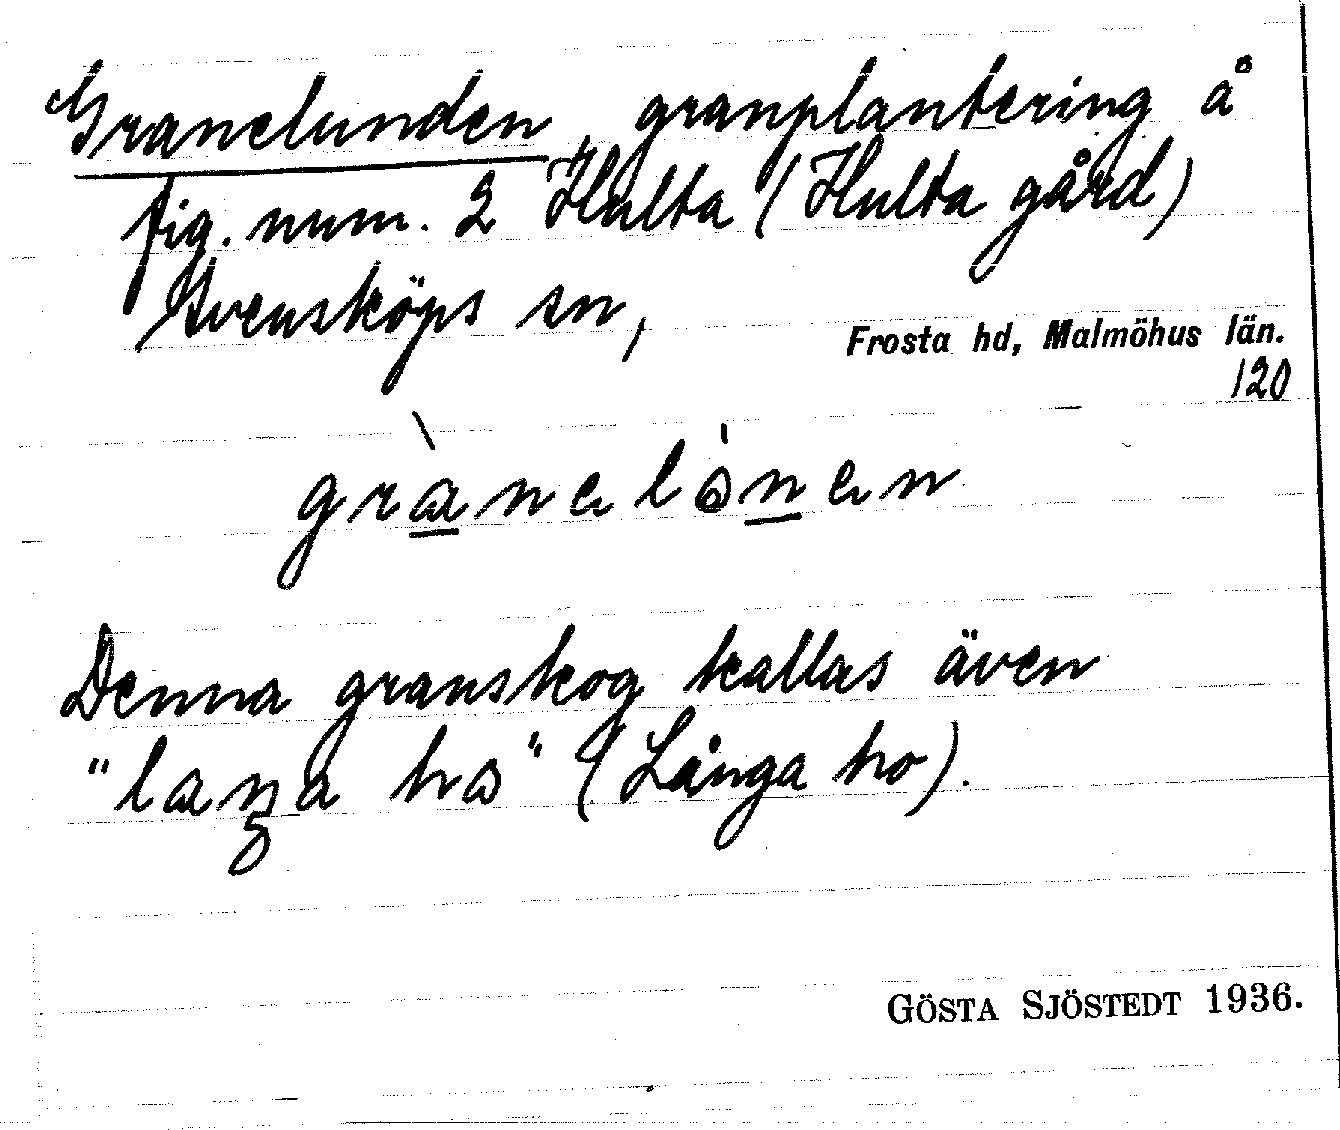 Granelunden, granplantering å
fig. num. 2 Hulta (Hulta gård)
Svensköps sn,
Frosta hd, Malmöhus län.
120
grànelònen
Denna granskog kallas även
"laŋa ho" (Långa ho).
GÖSTA SJÖSTEDT 1936.